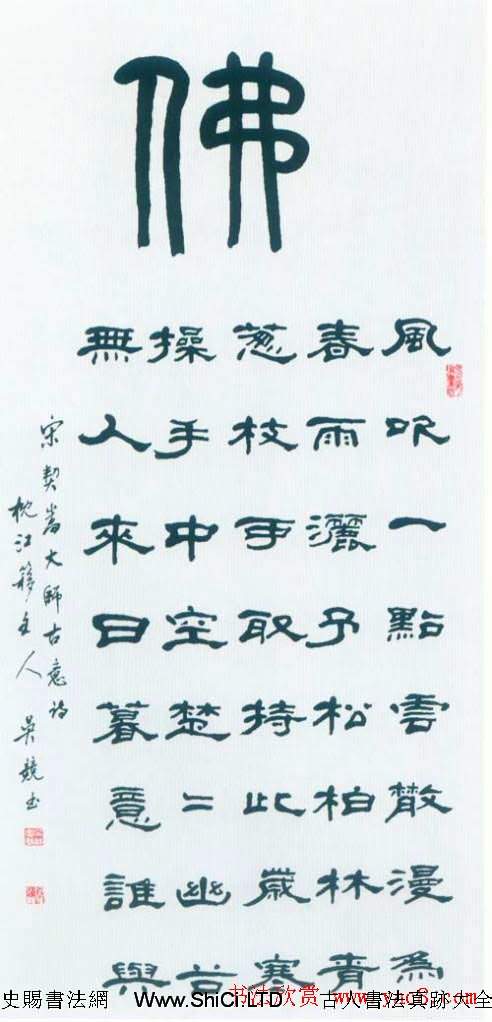 佛
風吹一點雲散漫為
春雨灑予松柏林青
葱枝可取持此歲寒
操手中空楚〻幽谷
無人來日暮意誰與
宋契嵩大師古意詩
枕江簃主人 吳競书
史賜書法網 Www.ShiCi.LTD 古人書法真跡大全
书法欣赏 www.yac8.com